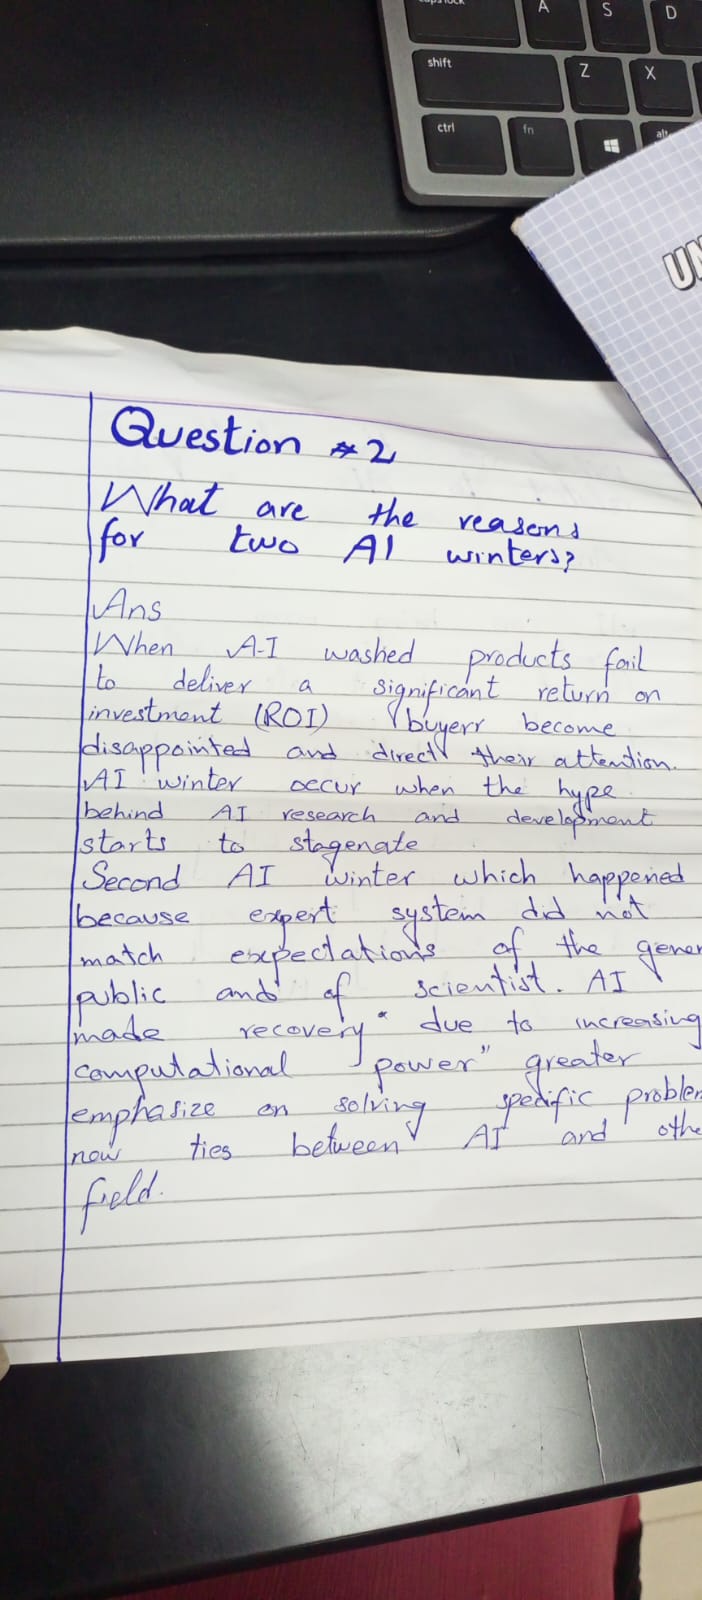 caps lock
A
S
D
shift
Z
X
ctrl
fn
alt
UN
Question #2
What are the reasons
for two AI winters?
Ans
When A-I washed products fail
to deliver a significant return on
investment (ROI) buyerr become
disappointed and direct their attention.
AI winter occur when the hype
behind AI research and development
starts to stagenate
Second AI winter which happened
because expert system did not
match expectations of the gener
public and of scientist. AI
made recovery " due to increasing
computational power" greater
emphasize on solving specific problem
new ties between AI and othe
field.